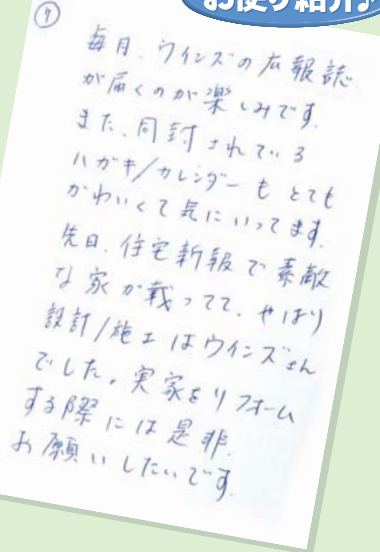 お便り紹介♪
⑦
毎月、ウインズの広報誌
が届くのが楽しみです。
また、同封されている
ハガキ/カレンダーもとても
かわいくて気にいってます。
先日、住宅新報で素敵
な家が載ってて、やはり
設計/施工はウインズさん
でした。実家をリフォーム
する際には是非、
お願いしたいです。